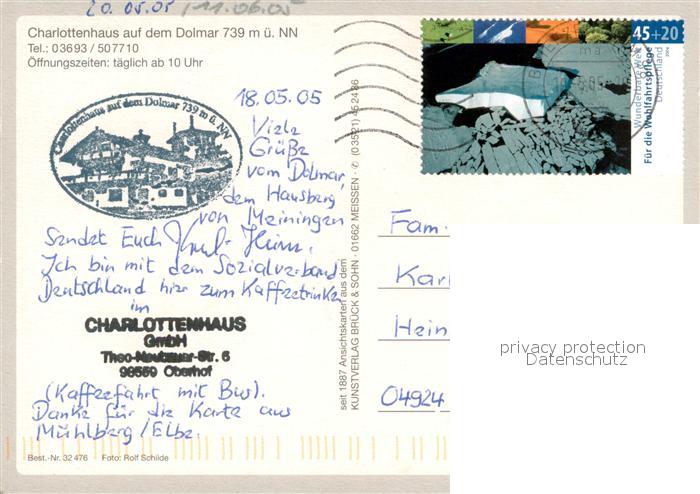 20.05.05 / 11.06.05
Charlottenhaus auf dem Dolmar 739 m ü. NN
Tel.: 03693 / 507710
Öffnungszeiten: täglich ab 10 Uhr
Charlottenhaus auf dem Dolmar 739 m ü. NN
18.05.05
Viele
Grüße
vom Dolmar,
dem Hausberg
von Meiningen
Sendet Euch
Ich bin mit dem Sozialverband
Deutschland hier zum Kaffeetrinken
im
CHARLOTTENHAUS
GmbH
Theo-Neubauer-Str. 6
98559 Oberhof
(Kaffeefahrt mit Bus).
Danke für die Karte aus
Mühlberg/Elbe.
Best.-Nr. 32 476 Foto: Rolf Schilde
seit 1887 Ansichtskarten aus dem
KUNSTVERLAG BRÜCK & SOHN · 01662 MEISSEN · ✆ (03521) 45 24 86
45+20
Wunderbare Welt
Für die Wohlfahrtspflege
Deutschland
Fam.
Karl
Hein
04924
privacy protection
Datenschutz